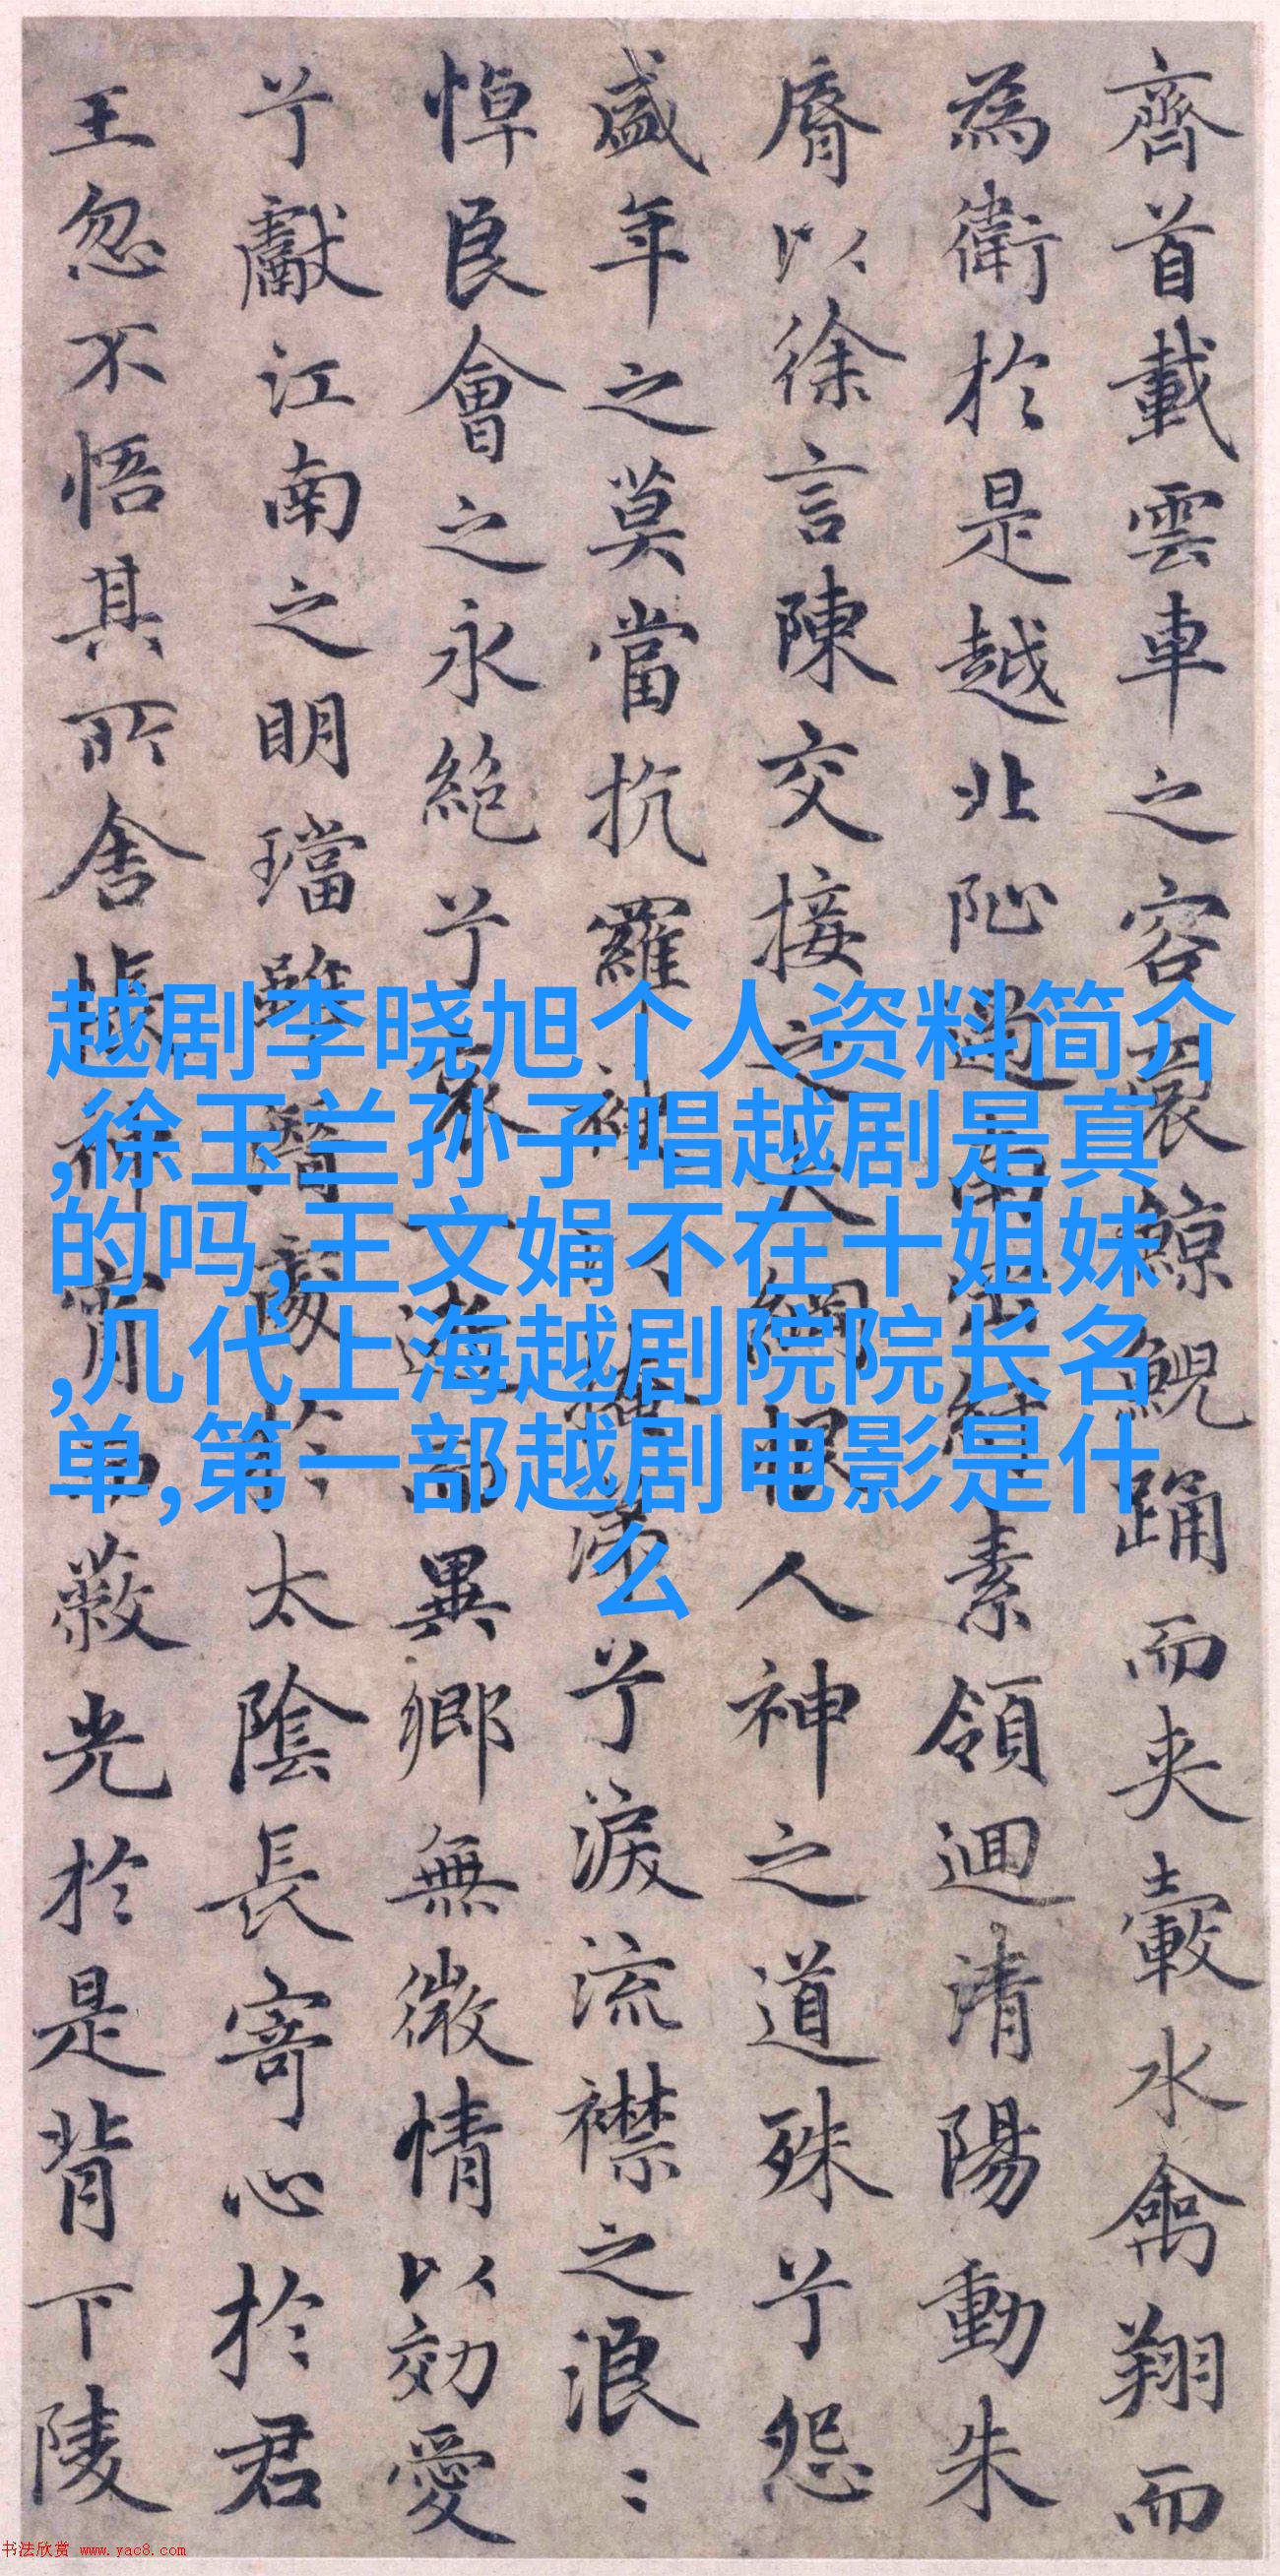 齊首載雲車之容裔鯨鯢踊而夾轂水禽翔而
為衛於是越北阯過南岡紆素領迴清陽動朱
脣以徐言陳交接之大綱恨人神之道殊兮怨
盛年之莫當抗羅袂以掩涕兮淚流襟之浪〻
悼良會之永絕兮哀一逝而異鄉無微情以効愛
兮獻江南之明璫雖潛處於太陰長寄心於君
王忽不悟其所舍悵神宵而蔽光於是背下陵
越剧李晓旭个人资料简介
,徐玉兰孙子唱越剧是真
的吗,王文娟不在十姐妹
,几代上海越剧院院长名
单,第一部越剧电影是什
么
书法欣赏 www.yac8.com